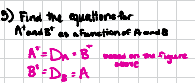 5) Find the equations for
A⁺and B⁺ as a function of A and B
A⁺ = D_A = B⁺ based on the figure
B⁺ = D_B = A above